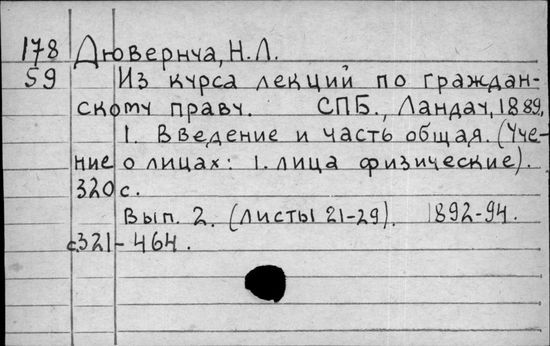 178 Дювернуа, Н.Л.
59 Из курса лекций по граждан-
скому праву. СПБ., Ландау, 1889,
1. Введение и часть общая. (Уче-
ние о лицах: 1. лица физические).
320 с.
Вып. 2. (листы 21-29). 1892-94.
с.321-464.